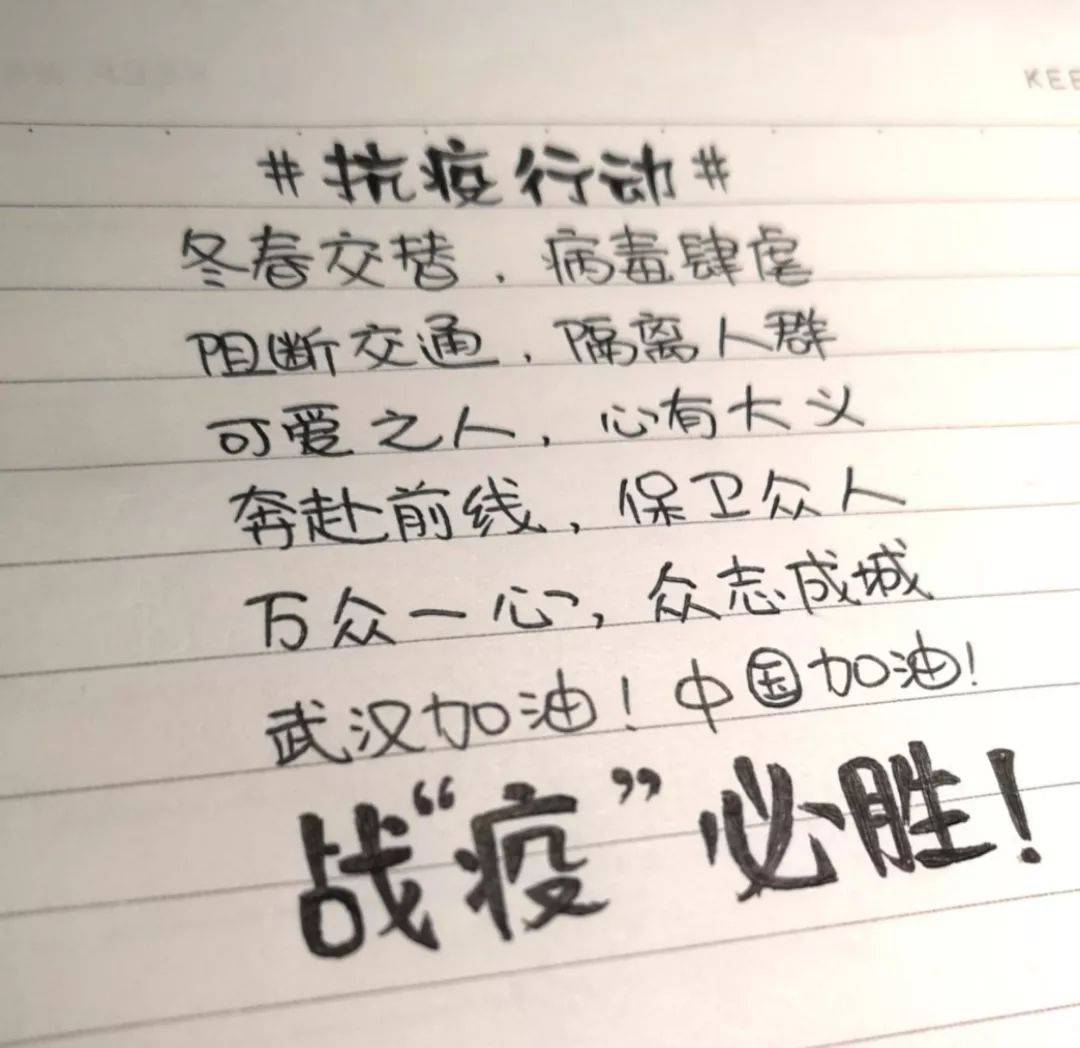 KEE
#抗疫行动#
冬春交替，病毒肆虐
阻断交通，隔离人群
可爱之人，心有大义
奔赴前线，保卫众人
万众一心，众志成城
武汉加油！中国加油！
战“疫”必胜！